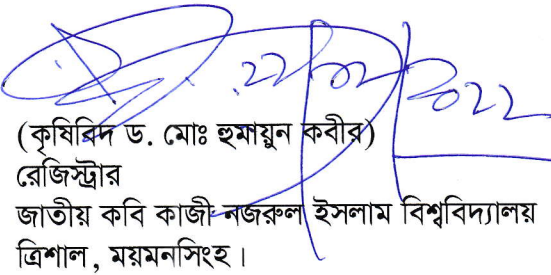 ২২/০২/২০২২
(কৃষিবিদ ড. মোঃ হুমায়ুন কবীর)
রেজিস্ট্রার
জাতীয় কবি কাজী নজরুল ইসলাম বিশ্ববিদ্যালয়
ত্রিশাল, ময়মনসিংহ।